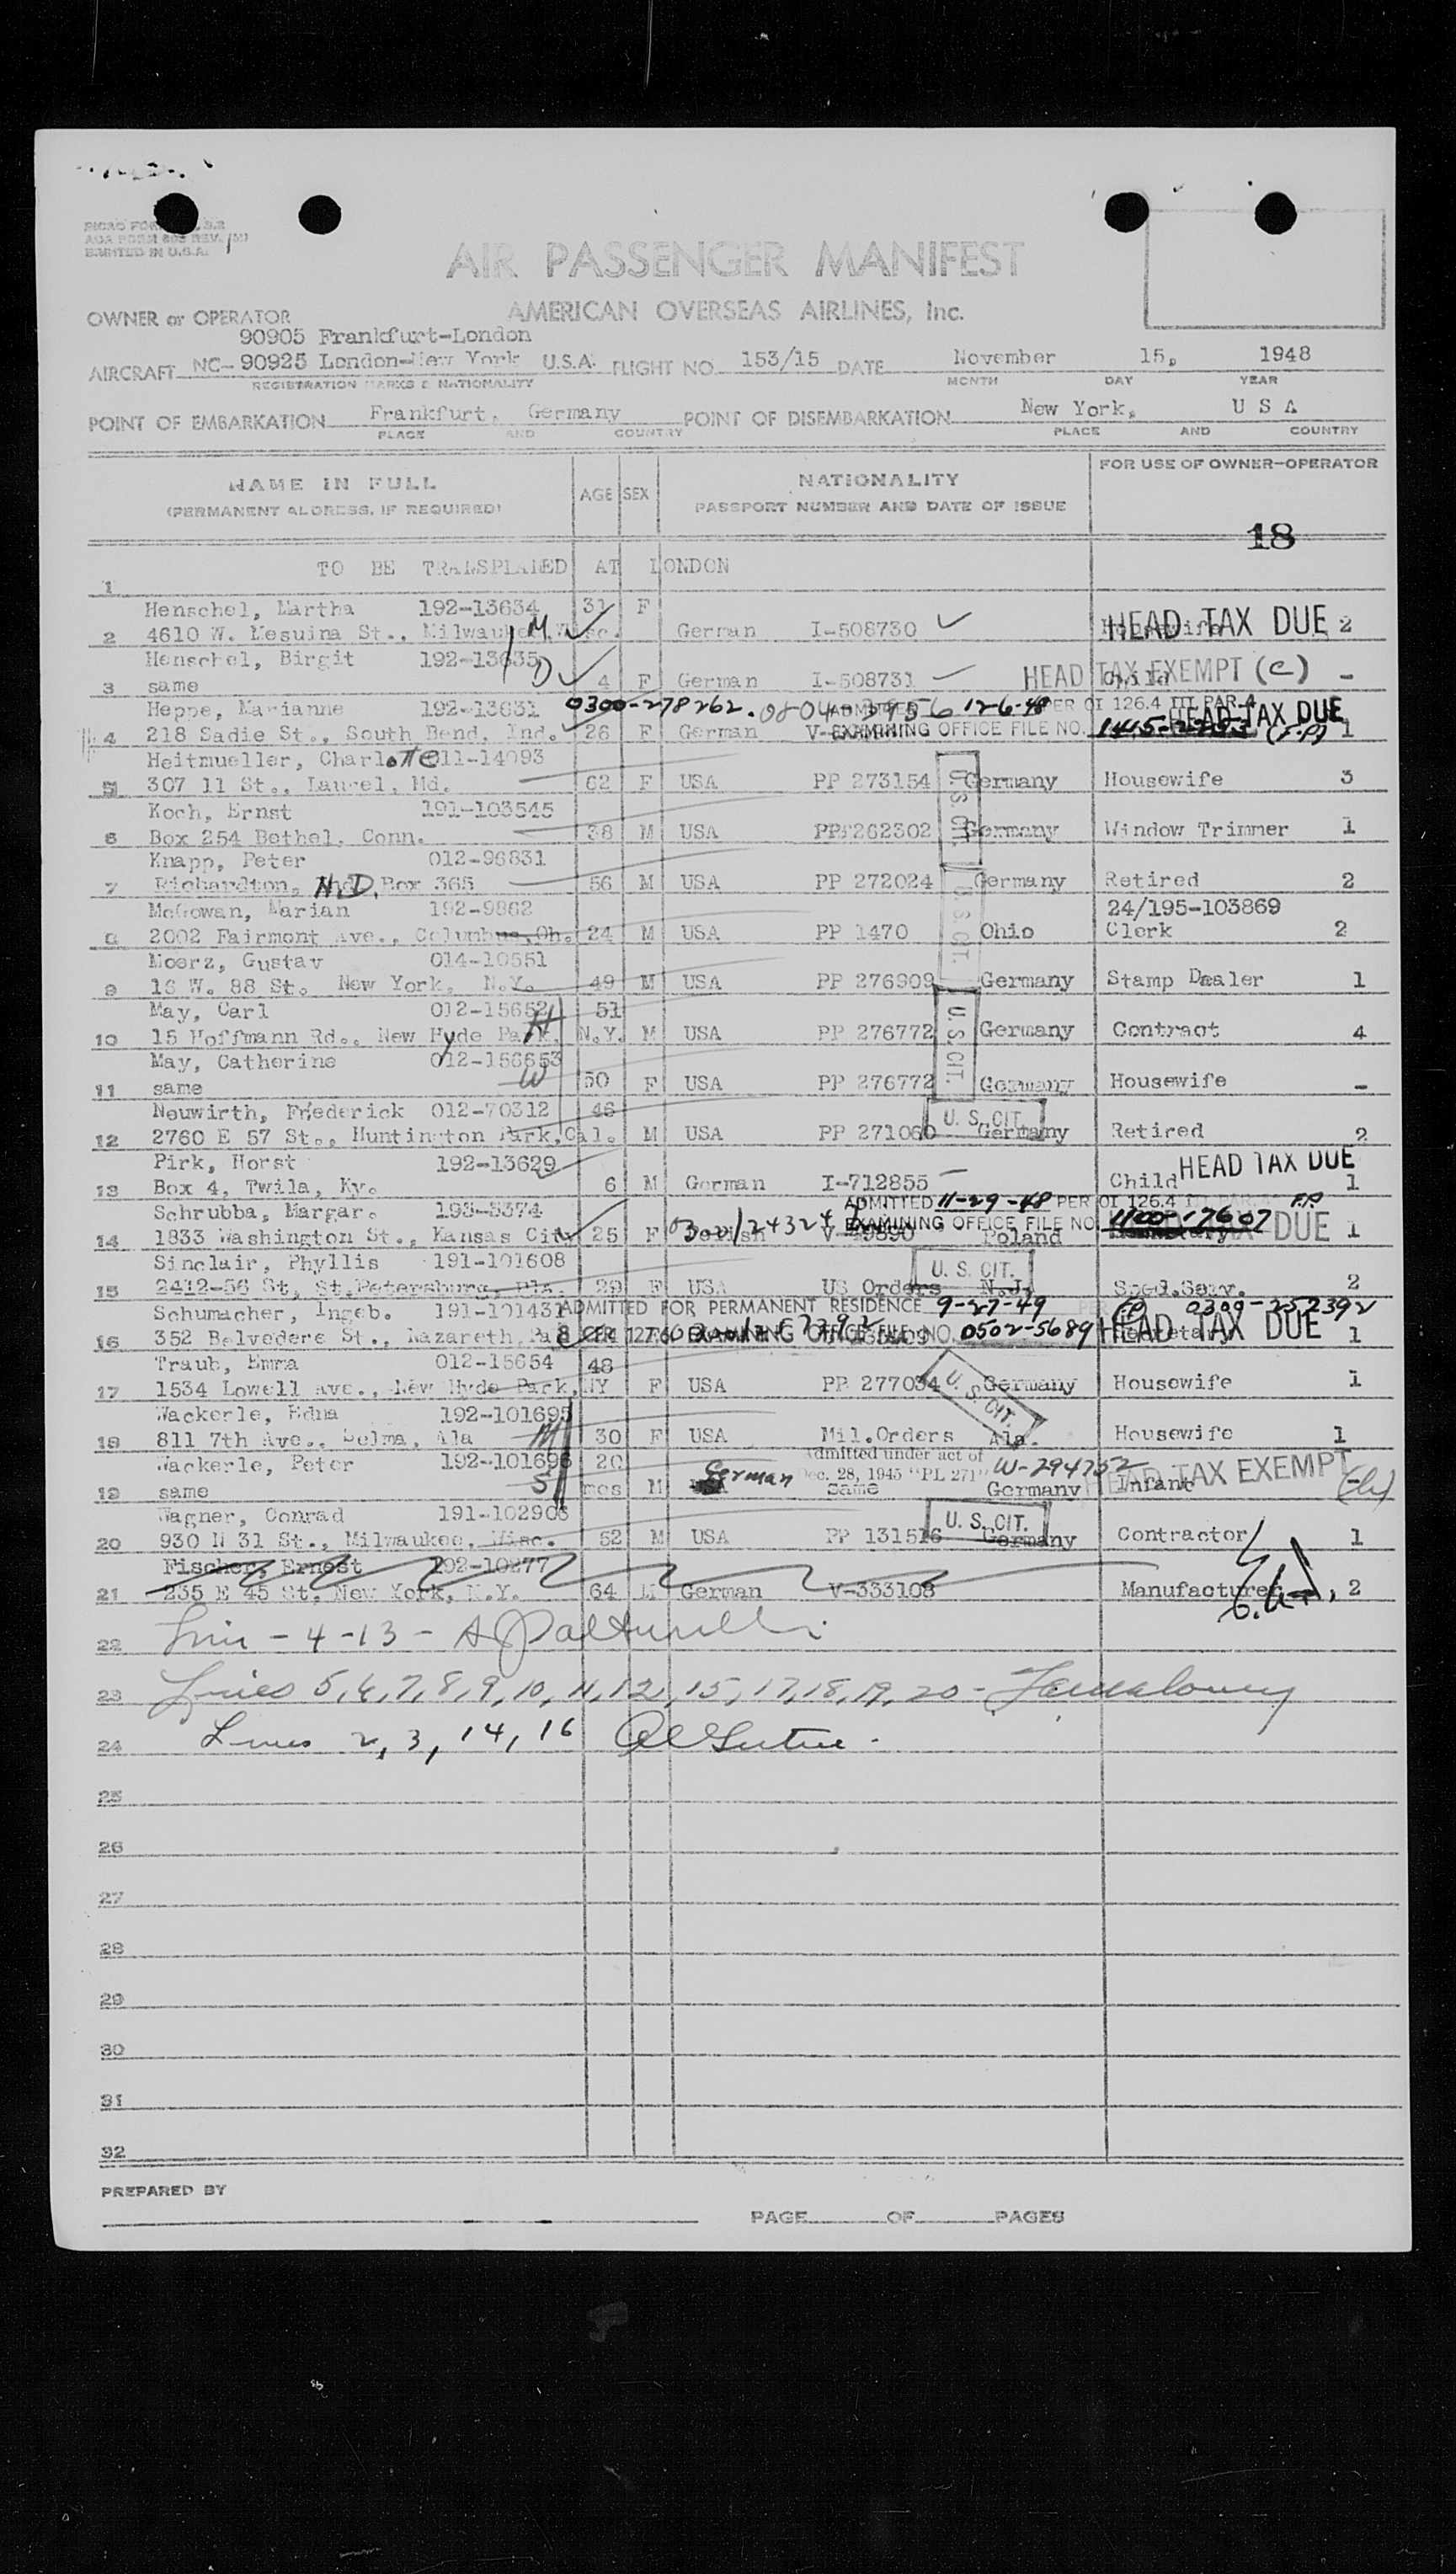 PRINTED IN U.S.A.
AIR PASSENGER MANIFEST
AMERICAN OVERSEAS AIRLINES, Inc.
OWNER or OPERATOR
90905 Frankfurt-London
AIRCRAFT NC- 90925 London-New York U.S.A. FLIGHT NO. 153/15 DATE November 15, 1948
REGISTRATION MARKS & NATIONALITY MONTH DAY YEAR
POINT OF EMBARKATION Frankfurt, Germany POINT OF DISEMBARKATION New York, U S A
PLACE AND COUNTRY PLACE AND COUNTRY
NAME IN FULL AGE SEX NATIONALITY FOR USE OF OWNER-OPERATOR
(PERMANENT ADDRESS, IF REQUIRED) PASSPORT NUMBER AND DATE OF ISSUE
18
1 TO BE TRANSPLANED AT LONDON
Henschel, Martha 192-13634 31 F
2 4610 W. St., Milwaukee, Wisc. M German I-508730 HEAD TAX DUE 2
Henschel, Birgit 192-13635 D
3 same 4 F German I-508731 HEAD TAX EXEMPT (c) Child -
Heppe, Marianne 192-13631 0300-278262. ADMITTED 12-6-48 PER OI 126.4 III PAR 4
4 218 Sadie St., South Bend, Ind. 26 F German V- EXAMINING OFFICE FILE NO. HEAD TAX DUE (F.P) 1
Heitmueller, Charlotte 11-14093
5 307 11 St., Laurel, Md. 62 F USA PP 273154 Germany Housewife 3
U.S. CIT.
Koch, Ernst 191-103545
6 Box 254 Bethel, Conn. 38 M USA PP 262302 Germany Window Trimmer 1
Knapp, Peter 012-96831
7 Richardton, N.D. Box 365 56 M USA PP 272024 Germany Retired 2
U.S. CIT.
McGowan, Marian 192-9862 24/195-103869
8 2002 Fairmont Ave., Columbus, Oh. 24 M USA PP 1470 Ohio Clerk 2
Moerz, Gustav 014-10551
9 16 W. 88 St. New York, N.Y. 49 M USA PP 276909 Germany Stamp Dealer 1
May, Carl 012-15652 H 51
10 15 Hoffmann Rd., New Hyde Park, N.Y. M USA PP 276772 Germany Contract 4
U.S CIT.
May, Catherine 012-156653 W
11 same 50 F USA PP 276772 Germany Housewife -
Neuwirth, Frederick 012-70312 46 U. S. CIT.
12 2760 E 57 St., Huntington Park, Cal. M USA PP 271060 Germany Retired 2
Pirk, Horst 192-13629 HEAD TAX DUE
13 Box 4, Twila, Ky. 6 M German I-712855 Child 1
Schrubba, Margar. 193-5374 ADMITTED 11-29-48 PER OI 126.4 F.P.
14 1833 Washington St., Kansas City 25 F EXAMINING OFFICE FILE NO. 1100-17607 Poland TAX DUE 1
Sinclair, Phyllis 191-101608 U. S. CIT.
15 2412-56 St, St.Petersburg, Fla. 29 F USA US Orders N.J. Specl.Serv. 2
Schumacher, Ingeb. 191-101431 ADMITTED FOR PERMANENT RESIDENCE 9-27-49 0300-252392
16 352 Belvedere St., Nazareth, Pa EXAMINING OFFICE FILE NO. 0502-5689 HEAD TAX DUE 1
Traub, Emma 012-15654 48
17 1534 Lowell Ave., New Hyde Park, NY F USA PP 277034 Germany Housewife 1
U. S. CIT.
Wackerle, Edna 192-101695
18 811 7th Ave., Selma, Ala M 30 F USA Mil.Orders Ala. Housewife 1
Wackerle, Peter 192-101696 20 Admitted under act of
Dec. 28, 1945 "PL 271" W-294752 HEAD TAX EXEMPT
19 same S mos M German same Germany Infant -
Wagner, Conrad 191-102903 U. S. CIT.
20 930 N 31 St., Milwaukee, Wisc. 52 M USA PP 131516 Germany Contractor 1
Fischer, Ernest 192-10277
21 235 E 45 St, New York, N.Y. 64 M German V-333108 Manufacturer 2
22 - 4 - 13 -
23 Lines 5, 6, 7, 8, 9, 10, 11, 12, 15, 17, 18, 19, 20 -
24 Lines 2, 3, 14, 16
25
26
27
28
29
30
31
32
PREPARED BY
PAGE OF PAGES